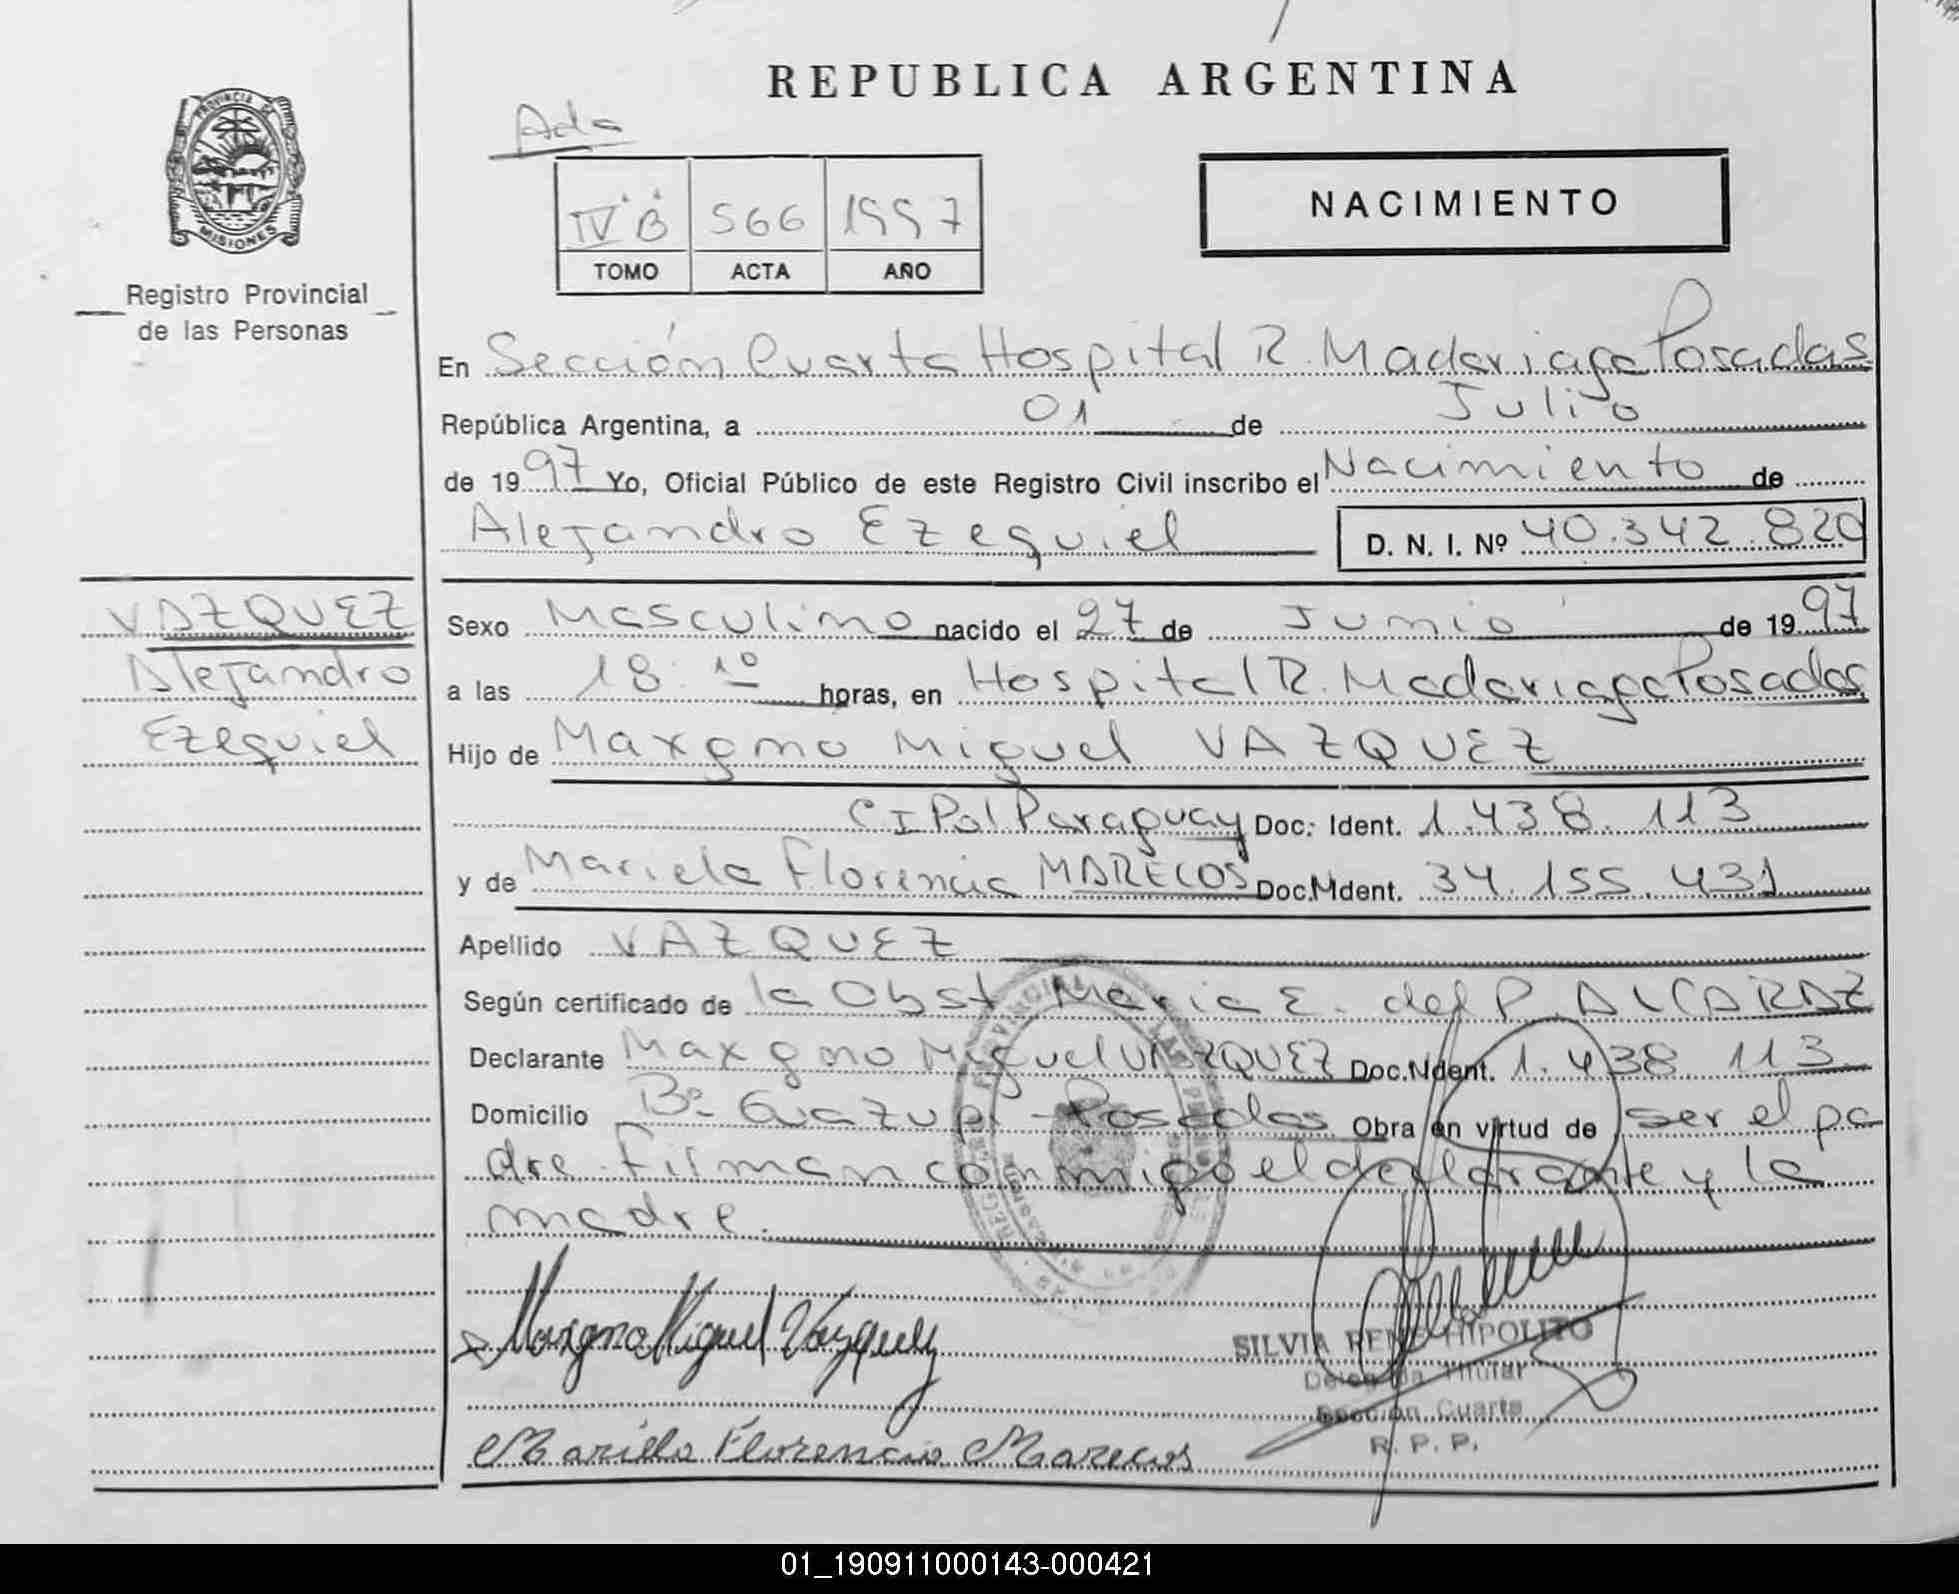 REPUBLICA ARGENTINA
PROVINCIA DE
MISIONES
Registro Provincial
de las Personas
IV "B" 566 1997
TOMO ACTA AÑO
NACIMIENTO
En Sección Cuarta Hospital R. Madariaga Posadas
República Argentina, a 01 de Julio
de 1997 Yo, Oficial Público de este Registro Civil inscribo el Nacimiento de
Alejandro Ezequiel D. N. I. Nº 40.342.820
VAZQUEZ
Alejandro
Ezequiel
Sexo Masculino nacido el 27 de Junio de 1997
a las 18.10 horas, en Hospital R. Madariaga Posadas
Hijo de Maxgmo Miguel VAZQUEZ
C I Pol Paraguay Doc. Ident. 1.438.113
y de Mariela Florencia MARECOS Doc.Ndent. 34.155.431
Apellido VAZQUEZ
Según certificado de la Obst Maria E. del P. ALCARAZ
Declarante Maxgmo Miguel VAZQUEZ Doc.Ndent. 1.438.113
Domicilio Bº Guazupi - Posadas Obra en virtud de ser el pa
dre. Firman conmigo el declarante y la
madre.
Maxgmo Miguel Vazquez
SILVIA RENE HIPOLITO
Delegada Titular
Sección Cuarta
R. P. P.
Mariela Florencia Marecos
01_190911000143-000421